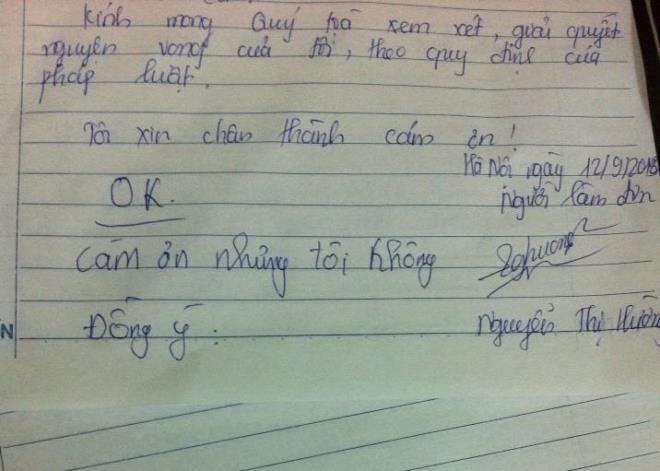 Kính mong Quý toà xem xét, giải quyết
nguyện vong của tôi, theo quy định của
pháp luật.
Tôi xin chân thành cám ơn!
Hà Nội ngày 12/9/2018
người làm đơn
OK.
Cám ơn nhưng tôi không
Đồng ý:
Nguyễn Thị Hường
N